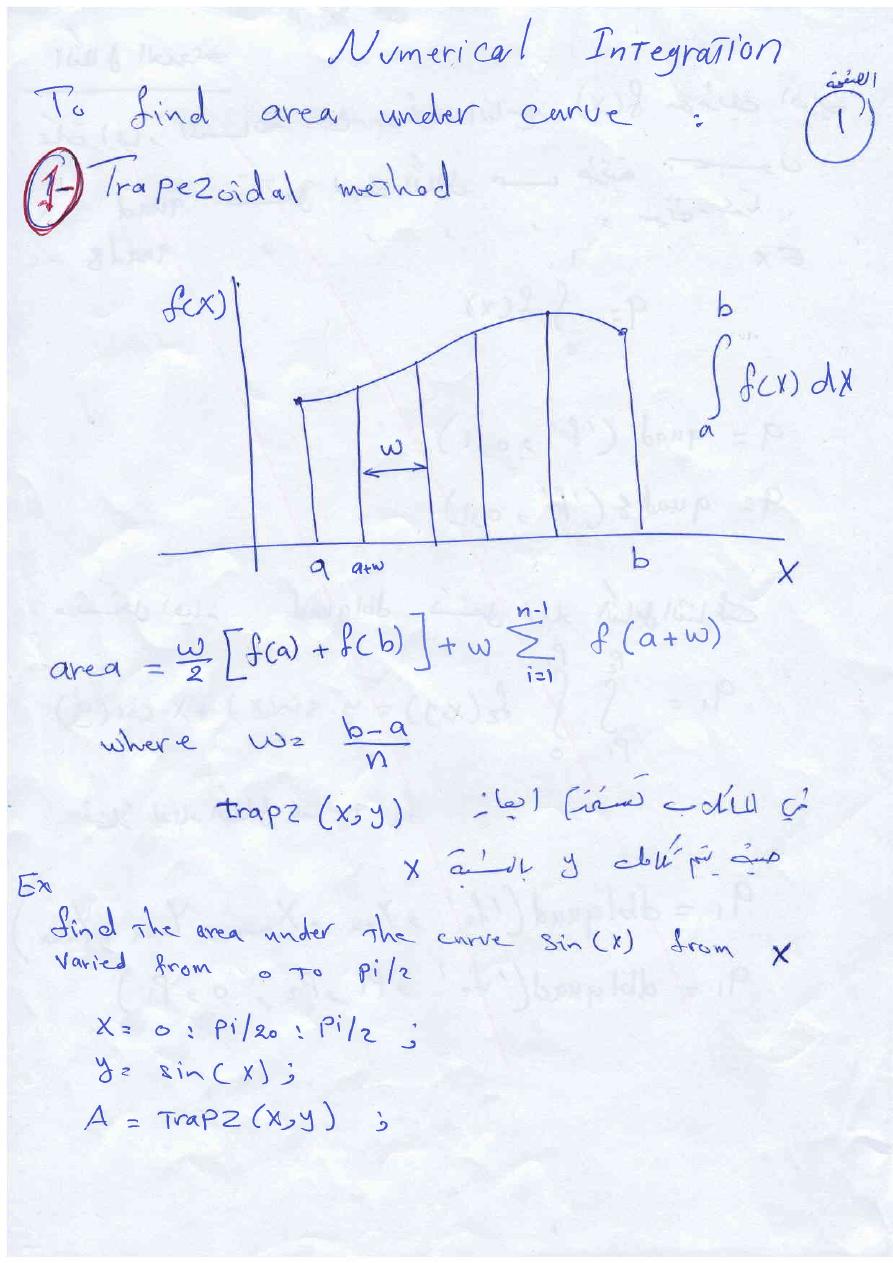 Numerical Integration
الصفحة
1
To find area under curve :
1- Trapezoidal method
f(x)
b
∫ f(x) dx
a
w
a a+w b X
area = w/2 [f(a) + f(b)] + w ∑_{i=1}^{n-1} f(a+w)
where w = (b-a)/n
في الماتلاب نستخدم ايعاز trapz(x,y)
حيث يتم تكامل y بالنسبة x
Ex
find The area under The curve sin(x) from x
varied from 0 To pi/2
X = 0 : Pi/20 : Pi/2 ;
y = sin(x) ;
A = TrapZ(x,y) ;